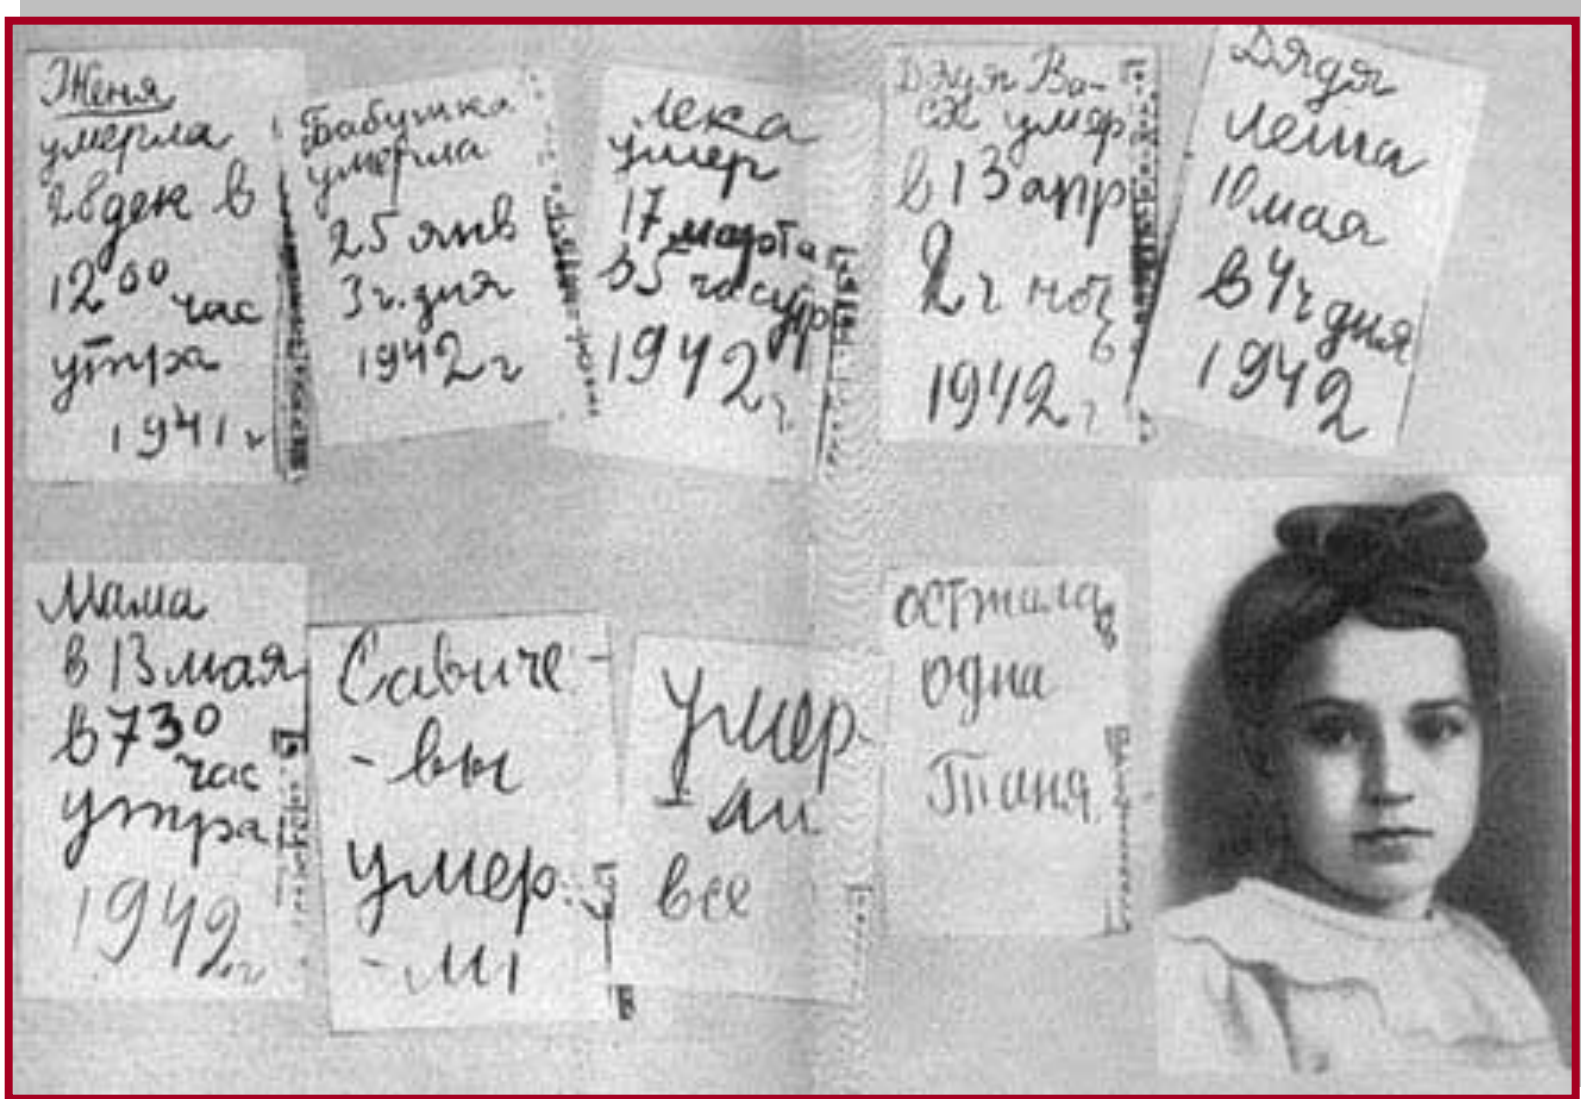 Женя
умерла
28 дек в
12 00 час
утра
1941 г
Бабушка
умерла
25 янв
3 ч. дня
1942 г
Лека
умер
17 марта
в 5 час утр
1942 г.
Дядя Ва-
ся умер
в 13 апр
2 ч ноч
ь
1942 г
Дядя
Леша
10 мая
в 4 ч дня
1942
Мама
в 13 мая
в 7 30
час
утра
1942 г
Савиче-
-вы
умер
-ли
Умер
-ли
все
Осталась
одна
Таня